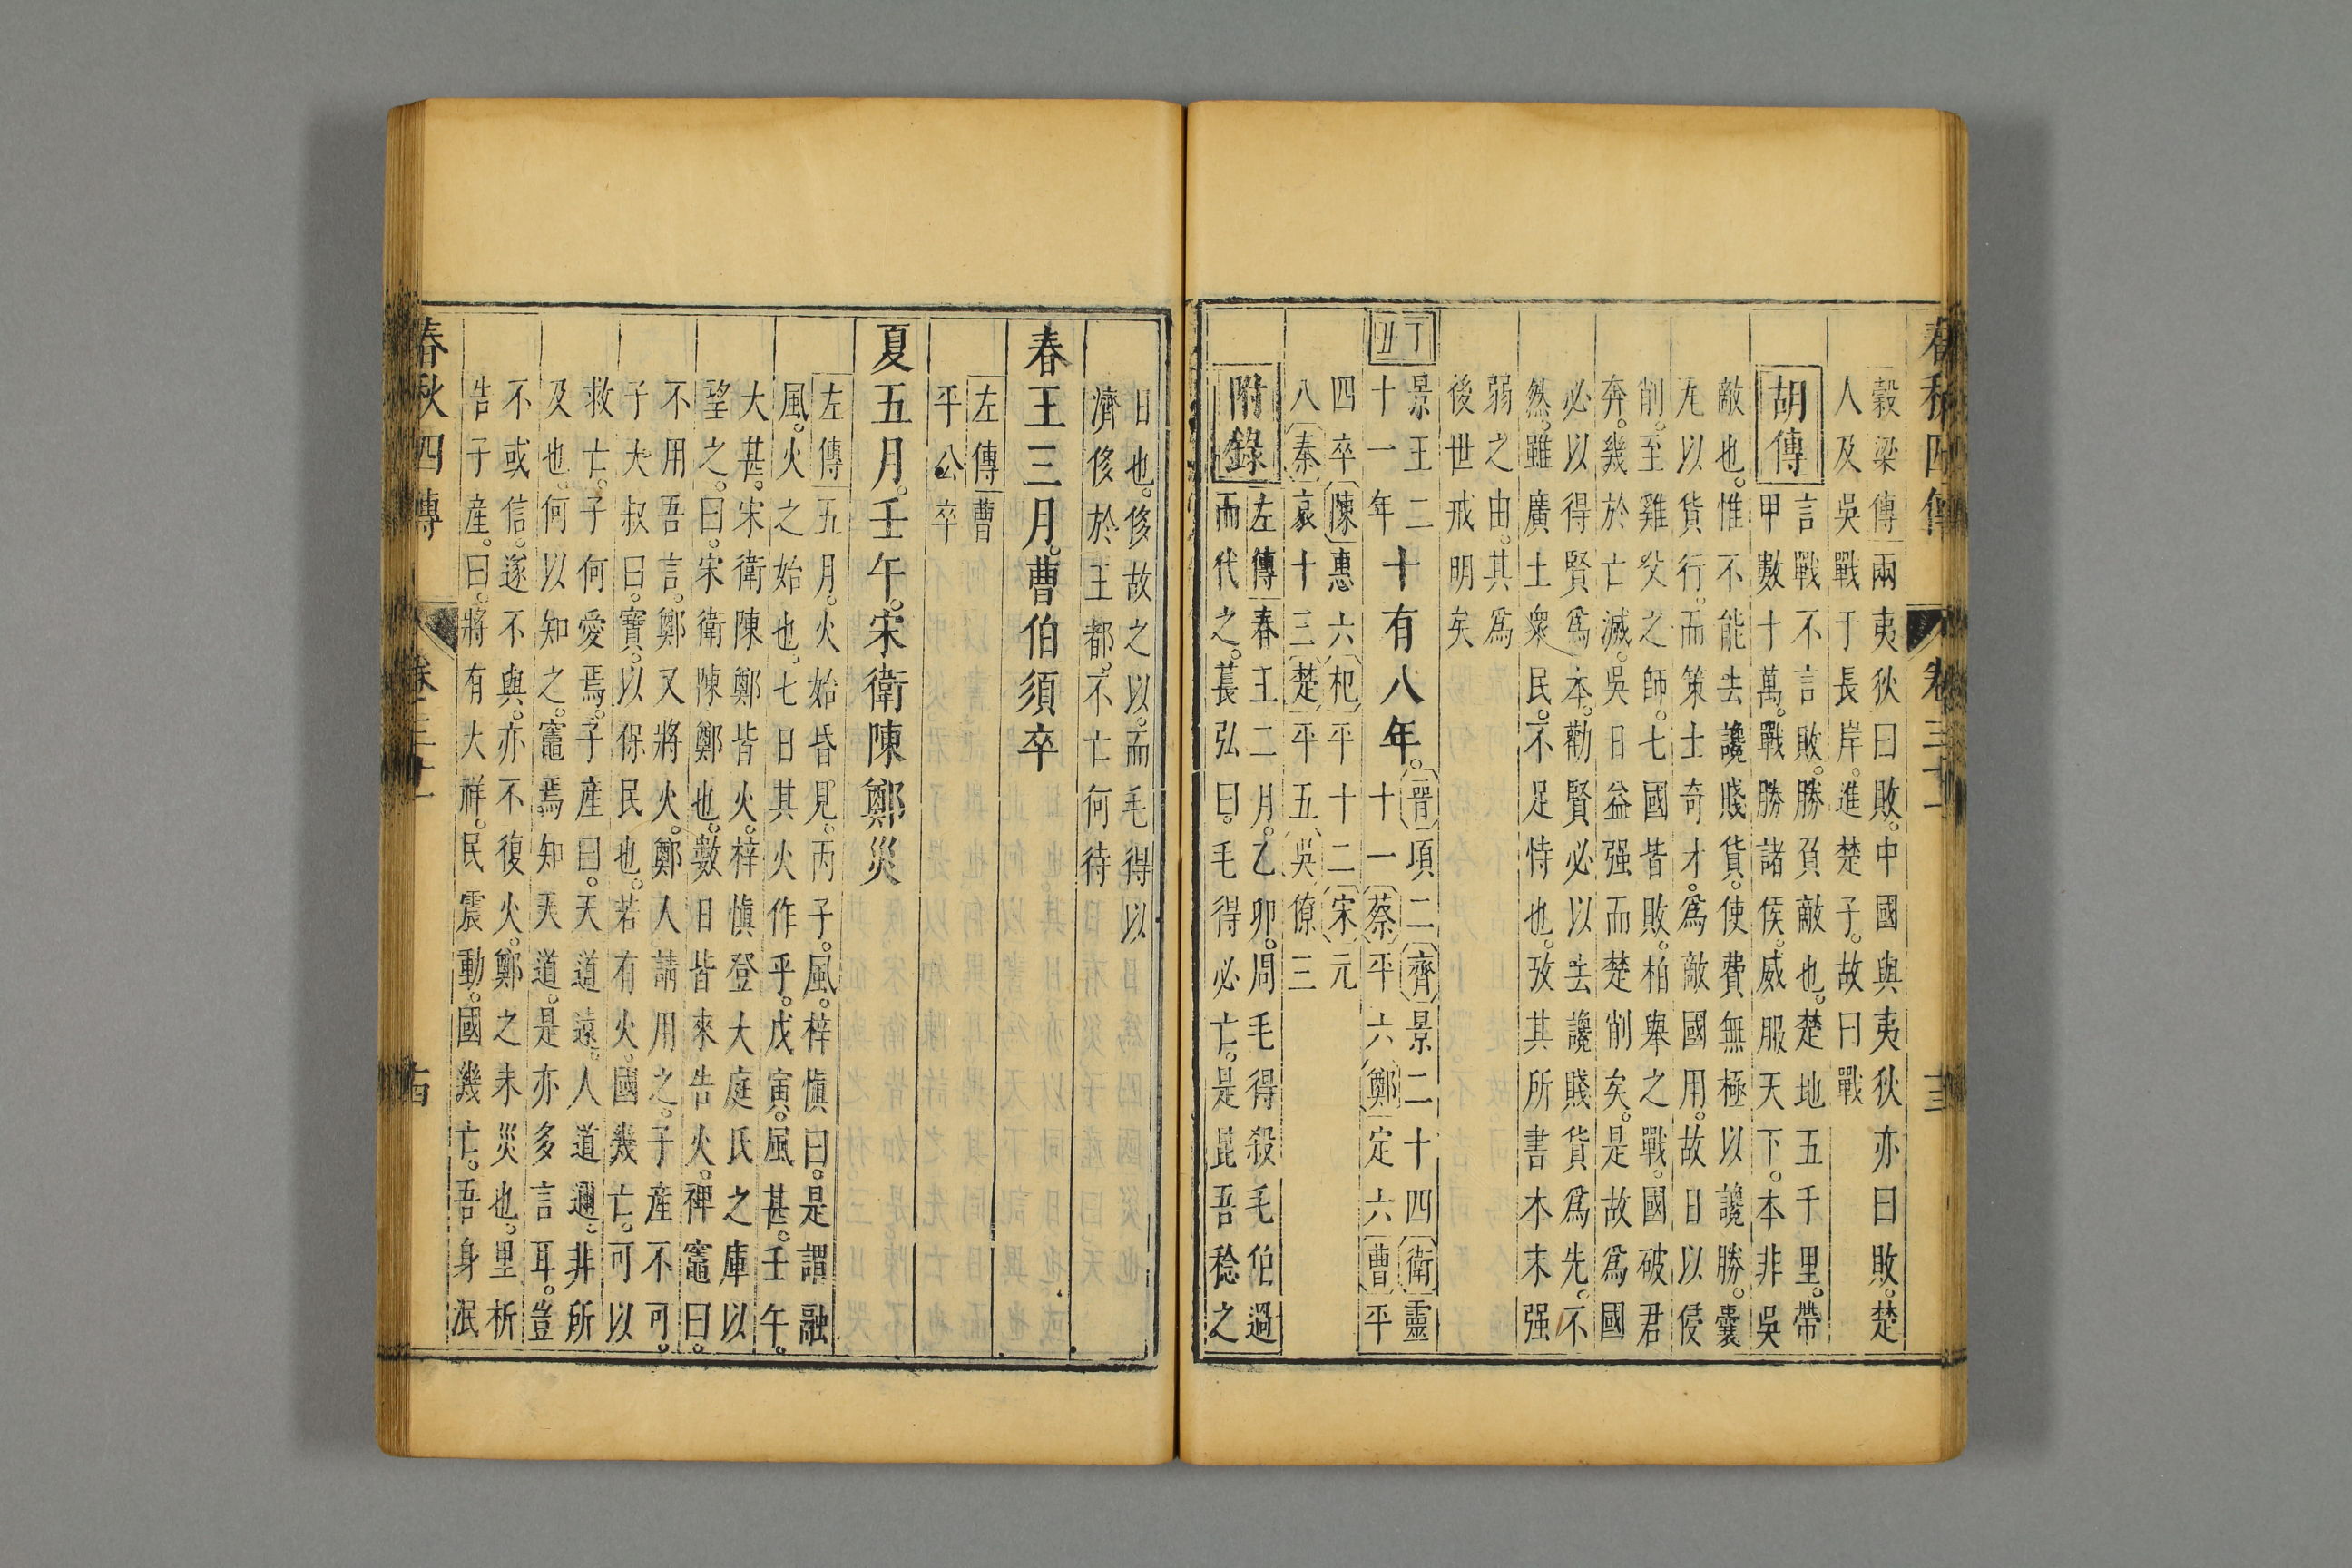 春秋四傳 卷三十一 十三
穀梁傳兩夷狄曰敗。中國與夷狄亦曰敗。楚
人及吳戰于長岸。進楚子。故曰戰
胡傳
言戰不言敗。勝負敵也。楚地五千里。帶
甲數十萬。戰勝諸侯。威服天下。本非吳
敵也。惟不能去讒賤貨。使費無極以讒勝。囊
瓦以貨行。而策士奇才。爲敵國用。故日以侵
削。至雞父之師。七國皆敗。柏舉之戰。國破君
奔。幾於亡滅。吳日益强而楚削矣。是故爲國
必以得賢爲本。勸賢必以去讒賤貨爲先。不
然。雖廣土衆民。不足恃也。攷其所書本末强
弱之由。其爲
後世戒明矣
丁丑
景王二
十一年
十有八年。
晉項二齊景二十四衛靈
十一蔡平六鄭定六曹平
四卒陳惠六杞平十二宋元
八秦哀十三楚平五吳僚三
附錄
左傳春王二月。乙卯。周毛得殺毛伯過
而代之。萇弘曰。毛得必亡。是昆吾稔之
日也。侈故之以。而毛得以
濟侈於王都。不亡何待
春王三月。曹伯須卒
左傳曹
平公卒
夏五月。壬午。宋衛陳鄭災
左傳五月。火始昏見。丙子。風。梓慎曰。是謂融
風。火之始也。七日其火作乎。戊寅。風甚。壬午。
大甚。宋衛陳鄭皆火。梓慎登大庭氏之庫以
望之。曰。宋衛陳鄭也。數日皆來告火。裨竈曰。
不用吾言。鄭又將火。鄭人請用之。子產不可。
子大叔曰。寶。以保民也。若有火。國幾亡。可以
救亡。子何愛焉。子產曰。天道遠。人道邇。非所
及也。何以知之。竈焉知天道。是亦多言耳。豈
不或信。遂不與。亦不復火。鄭之未災也。里析
告子產。曰。將有大祥。民震動。國幾亡。吾身泯
春秋四傳 卷三十一 十四